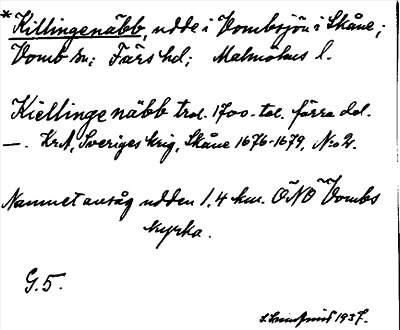 *Killingenäbb, udde i Vombsjön i Skåne;
Vomb sn; Färs hd; Malmöhus l.
Kiellinge näbb trol. 1700-tal. förra del.
—. KrA, Sveriges krig, Skåne 1676-1679, No 2.
Namnet avsåg udden 1,4 km. ÖNÖ Vombs
kyrka.
G.5.
1937.